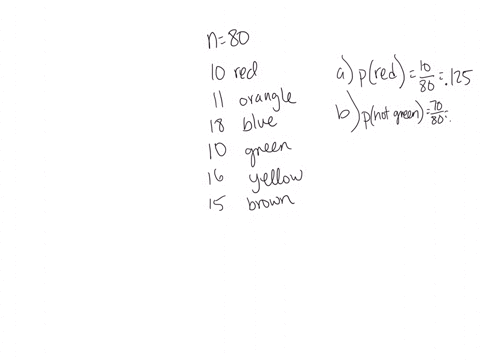 n=80
10 red
11 orangle
18 blue
10 green
16 yellow
15 brown
a) p(red) = 10/80 = .125
b) p(not green) = 70/80 = .